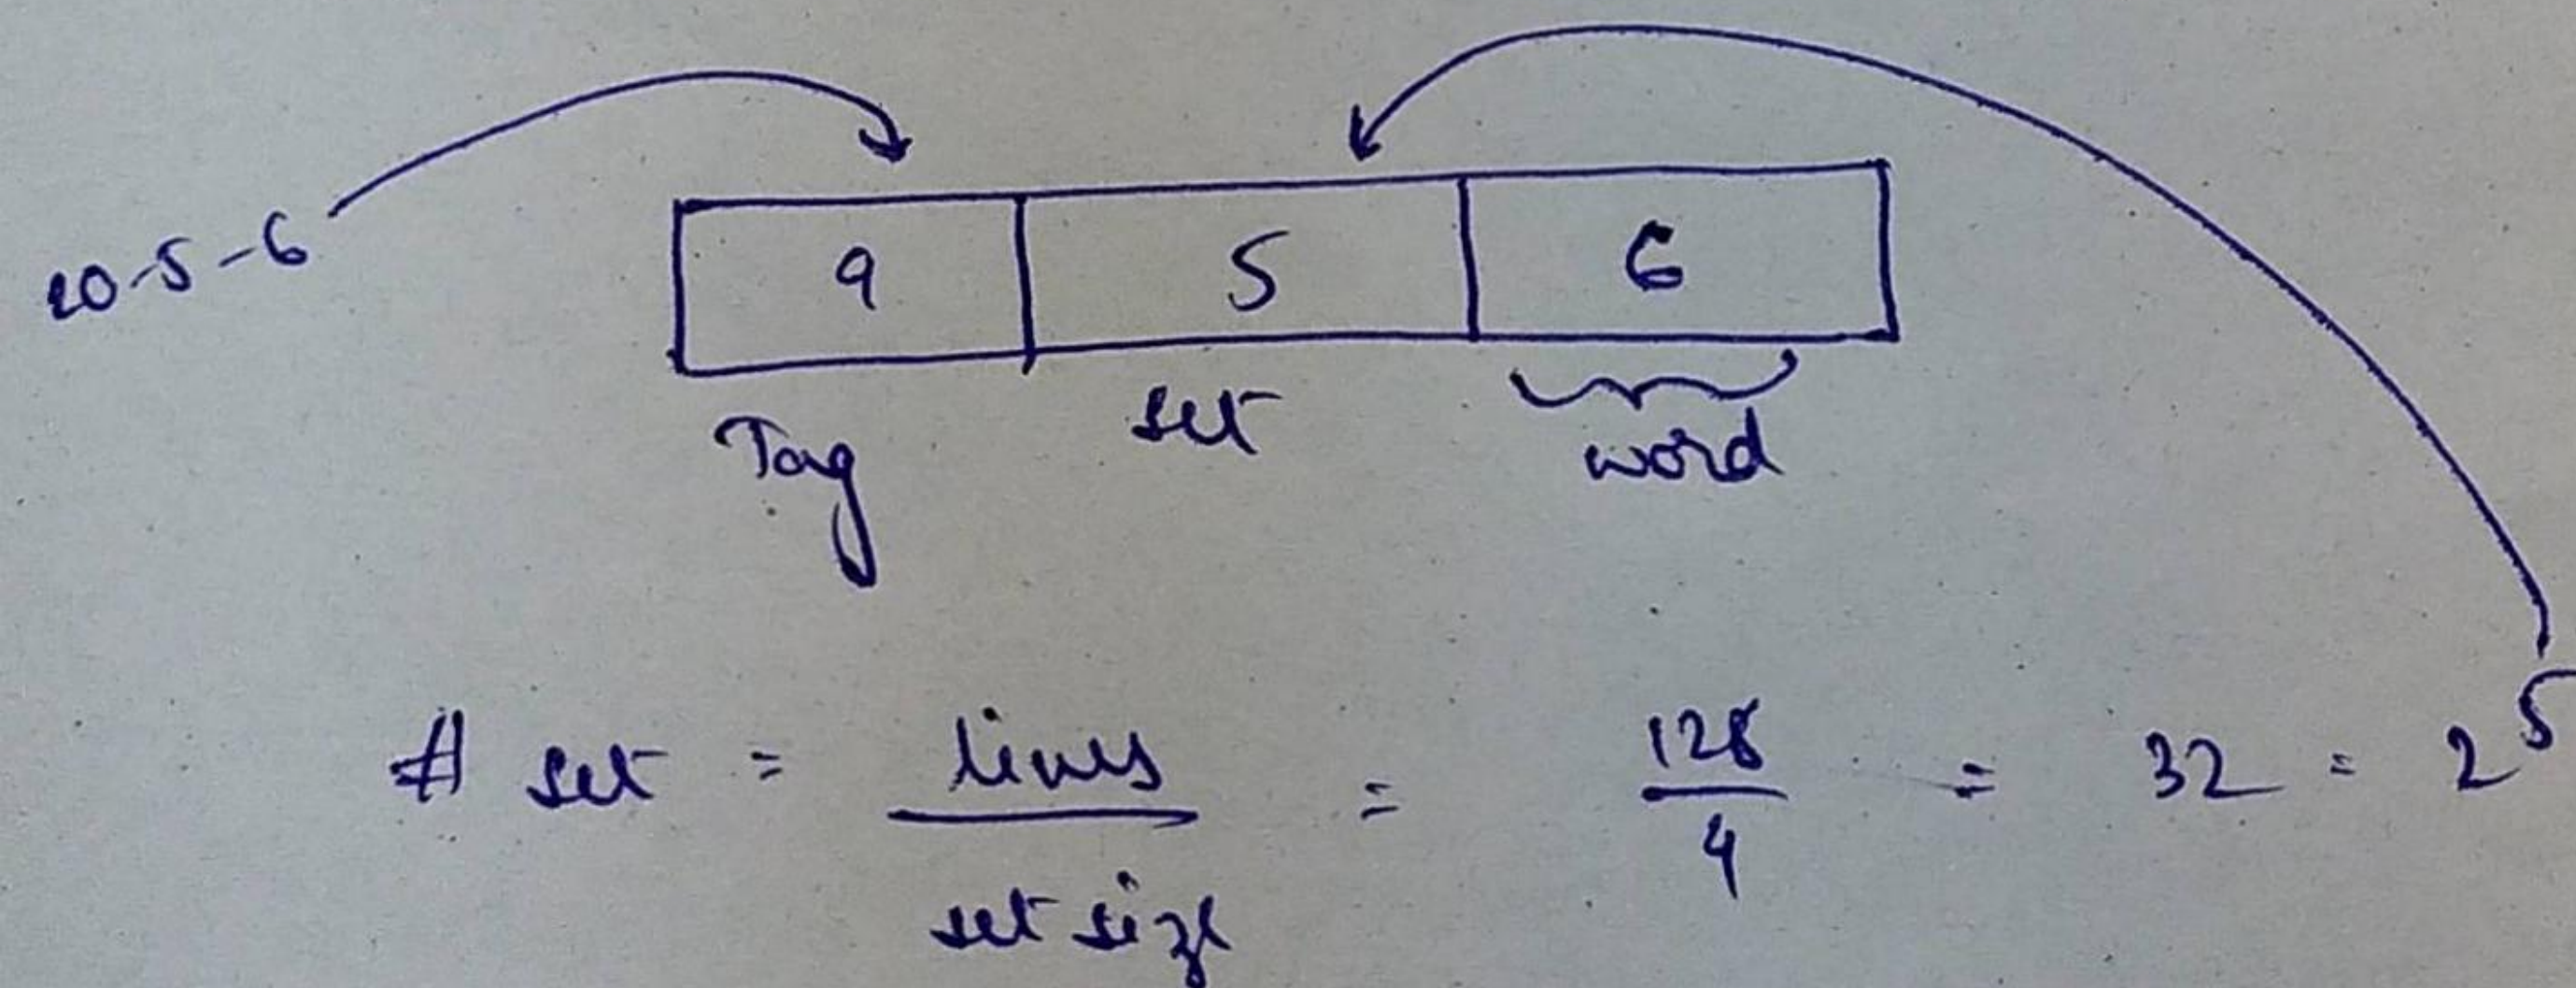 20-5-6
9 5 6
Tag set word
# set = lines / set size = 128 / 4 = 32 = 2^5